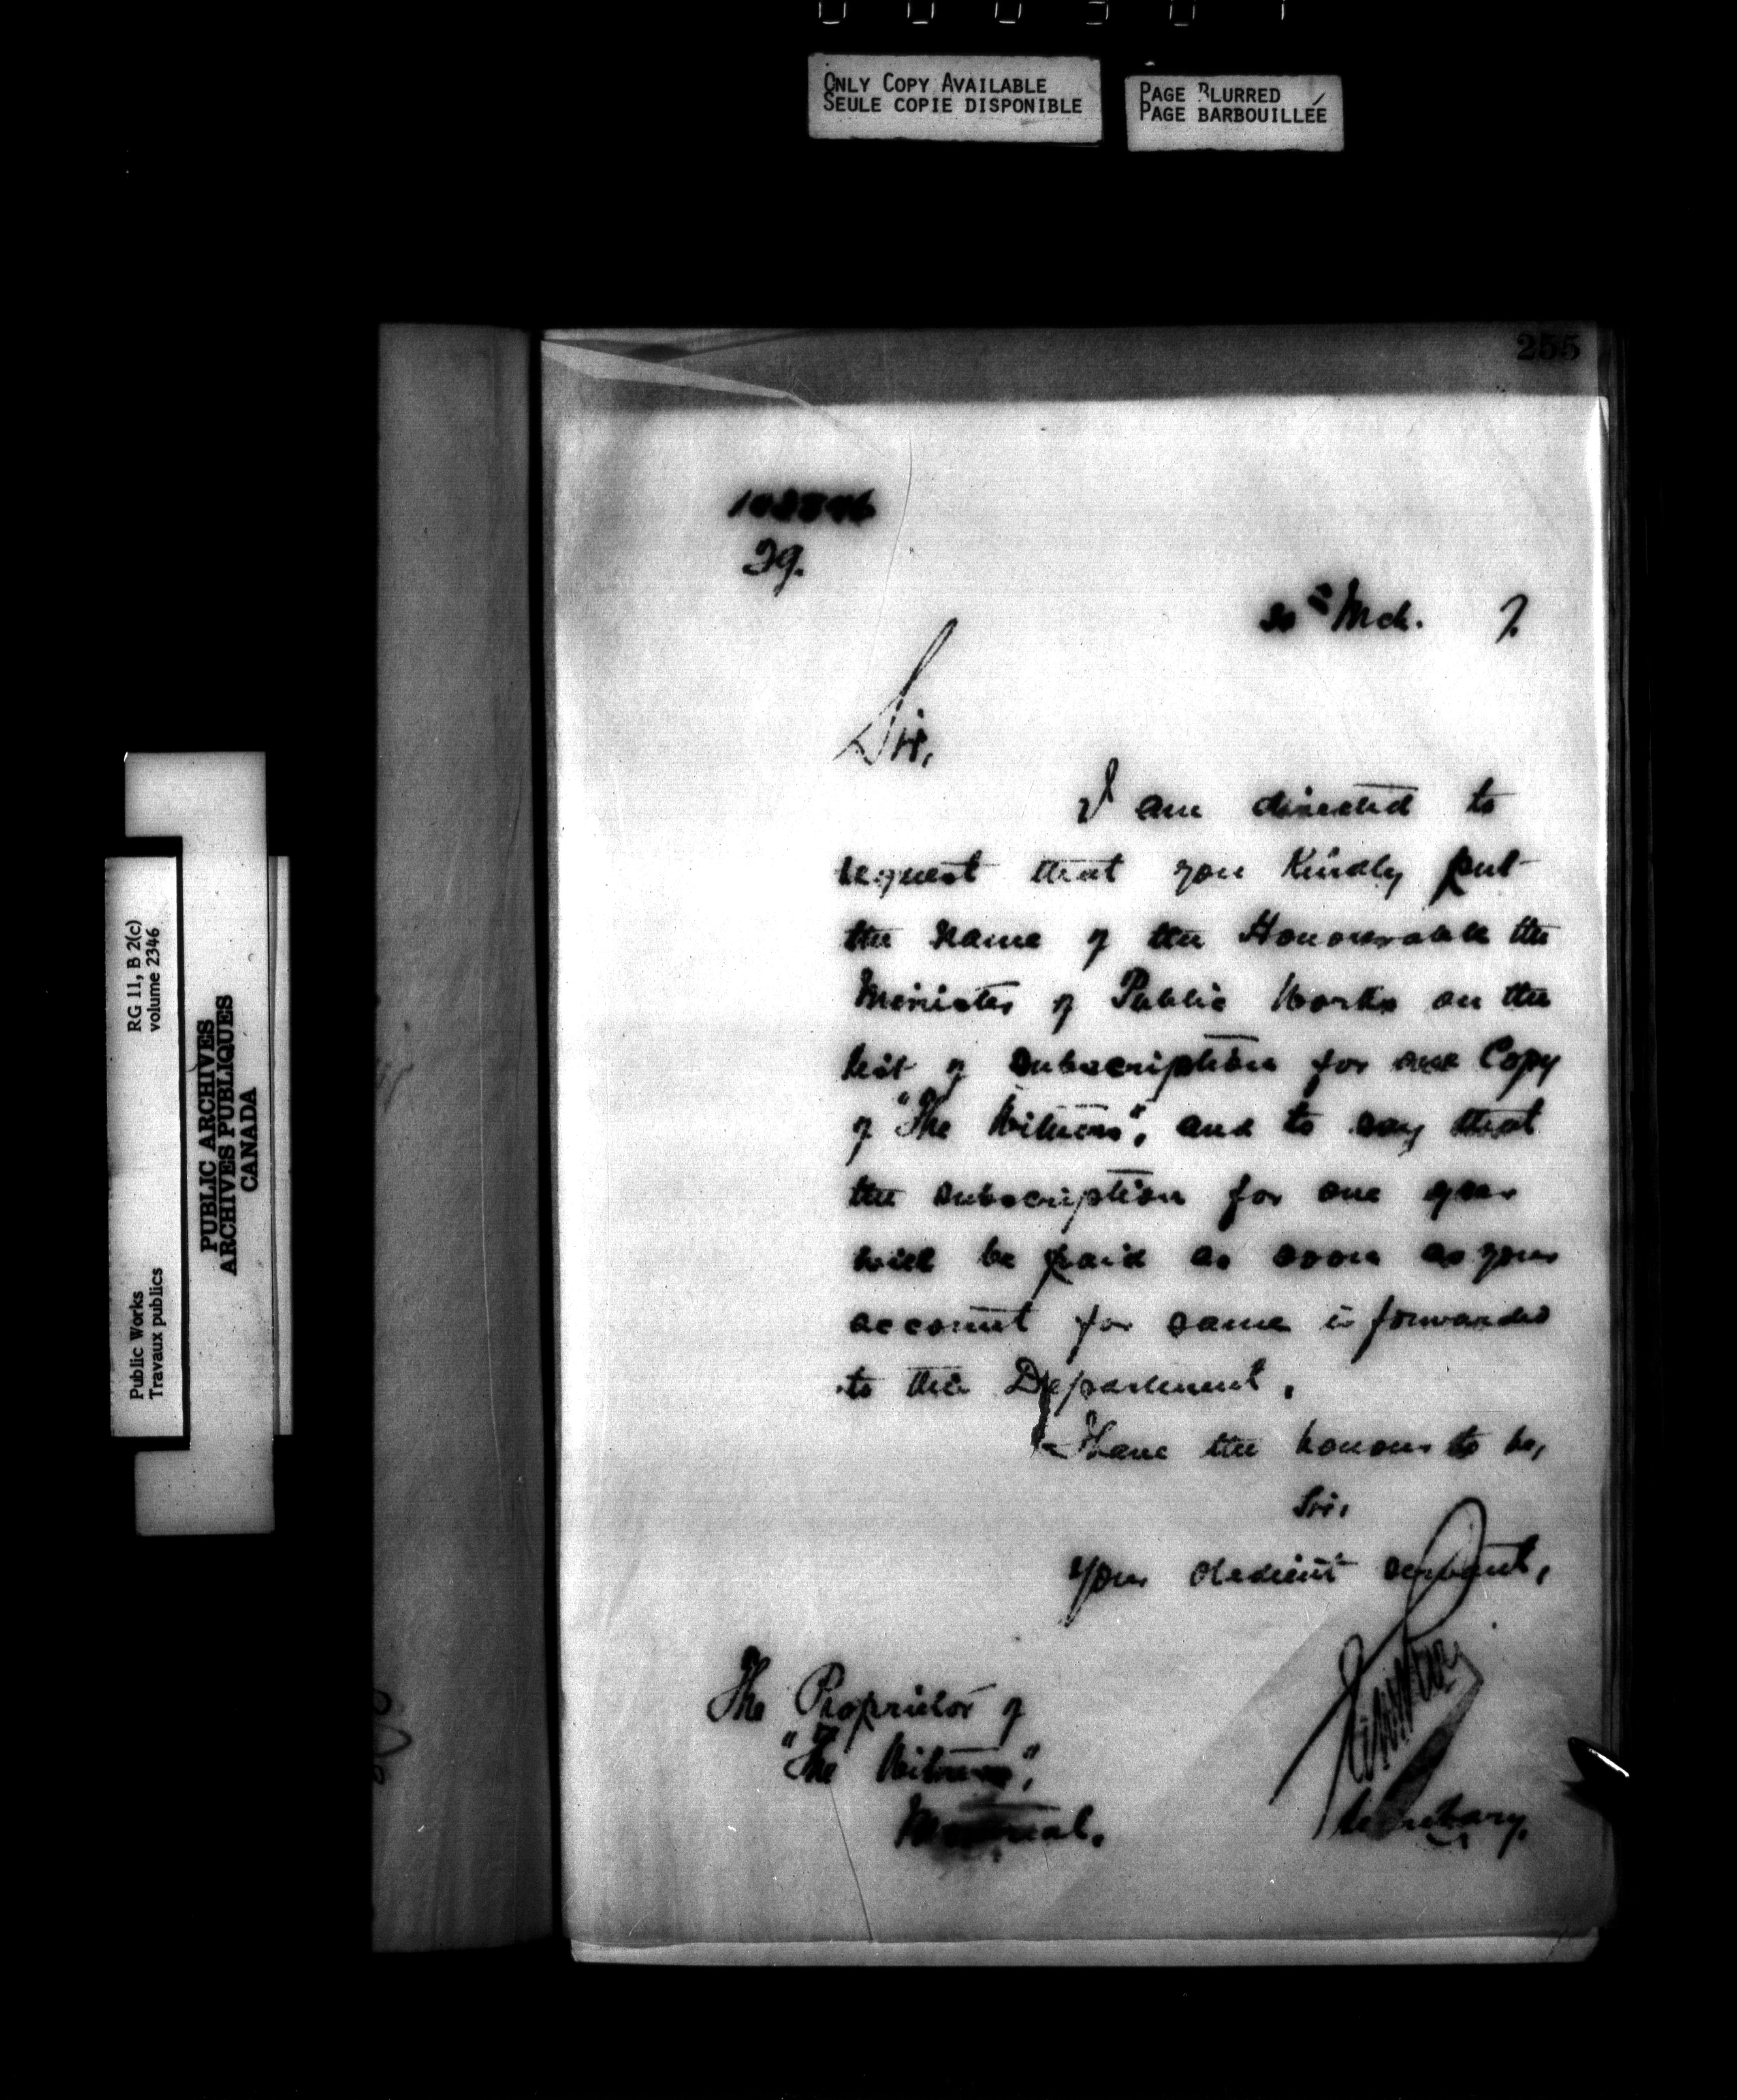 ONLY COPY AVAILABLE
SEULE COPIE DISPONIBLE
PAGE BLURRED
PAGE BARBOUILLÉE
255
39.
Mch. 7.
Sir,
I am directed to
request that you Kindly put
the name of the Honourable the
Minister of Public Works on the
list of subscription for one Copy
of "The Witness", and to say that
the subscription for one year
will be paid as soon as your
account for same is forwarded
to this Department.
I Have the honour to be,
Sir,
Your obedient servant,
Secretary.
The Proprietor of
"The Witness",
Montreal.
RG 11, B 2(c)
volume 2346
Public Works
Travaux publics
PUBLIC ARCHIVES
ARCHIVES PUBLIQUES
CANADA